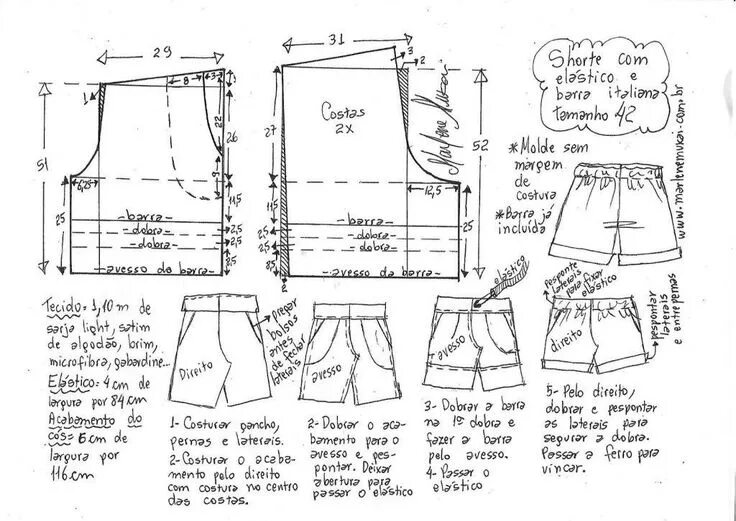 29
1
8
3
3
22
26
9
51
6,25
11,5
25
-barra-
-dobra-
-dobra-
2,5
2,5
avesso da barra
31
3
2
Costas
2X
27
52
12,5
11,5
25
2,5
2,5
8,5
-barra-
-dobra-
-dobra-
avesso da barra-
2
25
Marlene Mukai
Shorte com
elástico e
barra italiana
tamanho 42
www.marlenemukai.com.br
*Molde sem
margem
de
costura
*Barra já
incluída
Tecido=1,10 m de
sarja light, satim
de algodão, brim,
microfibra, gabardine...
Elástico=4 cm de
largura por 84 cm
Acabamento do
cós=6 cm de
largura por
116 cm
Direito
pregar
bolsos
antes
de fechar
laterais
1- Costurar gancho,
pernas e laterais.
2- Costurar o acaba-
mento pelo direito
com costura no centro
das costas.
avesso
2- Dobrar o aca-
bamento para o
avesso e pes-
pontar. Deixar
abertura para
passar o elástico
elástico
avesso
3- Dobrar a barra
na 1ª dobra e
fazer a barra
pelo avesso.
4- Passar o
elástico
pesponte
laterais
para fixar
elástico
direito
pespontar
laterais
e entrepernas
5- Pelo direito,
dobrar e pespontar
as laterais para
segurar a dobra.
Passar a ferro para
vincar.